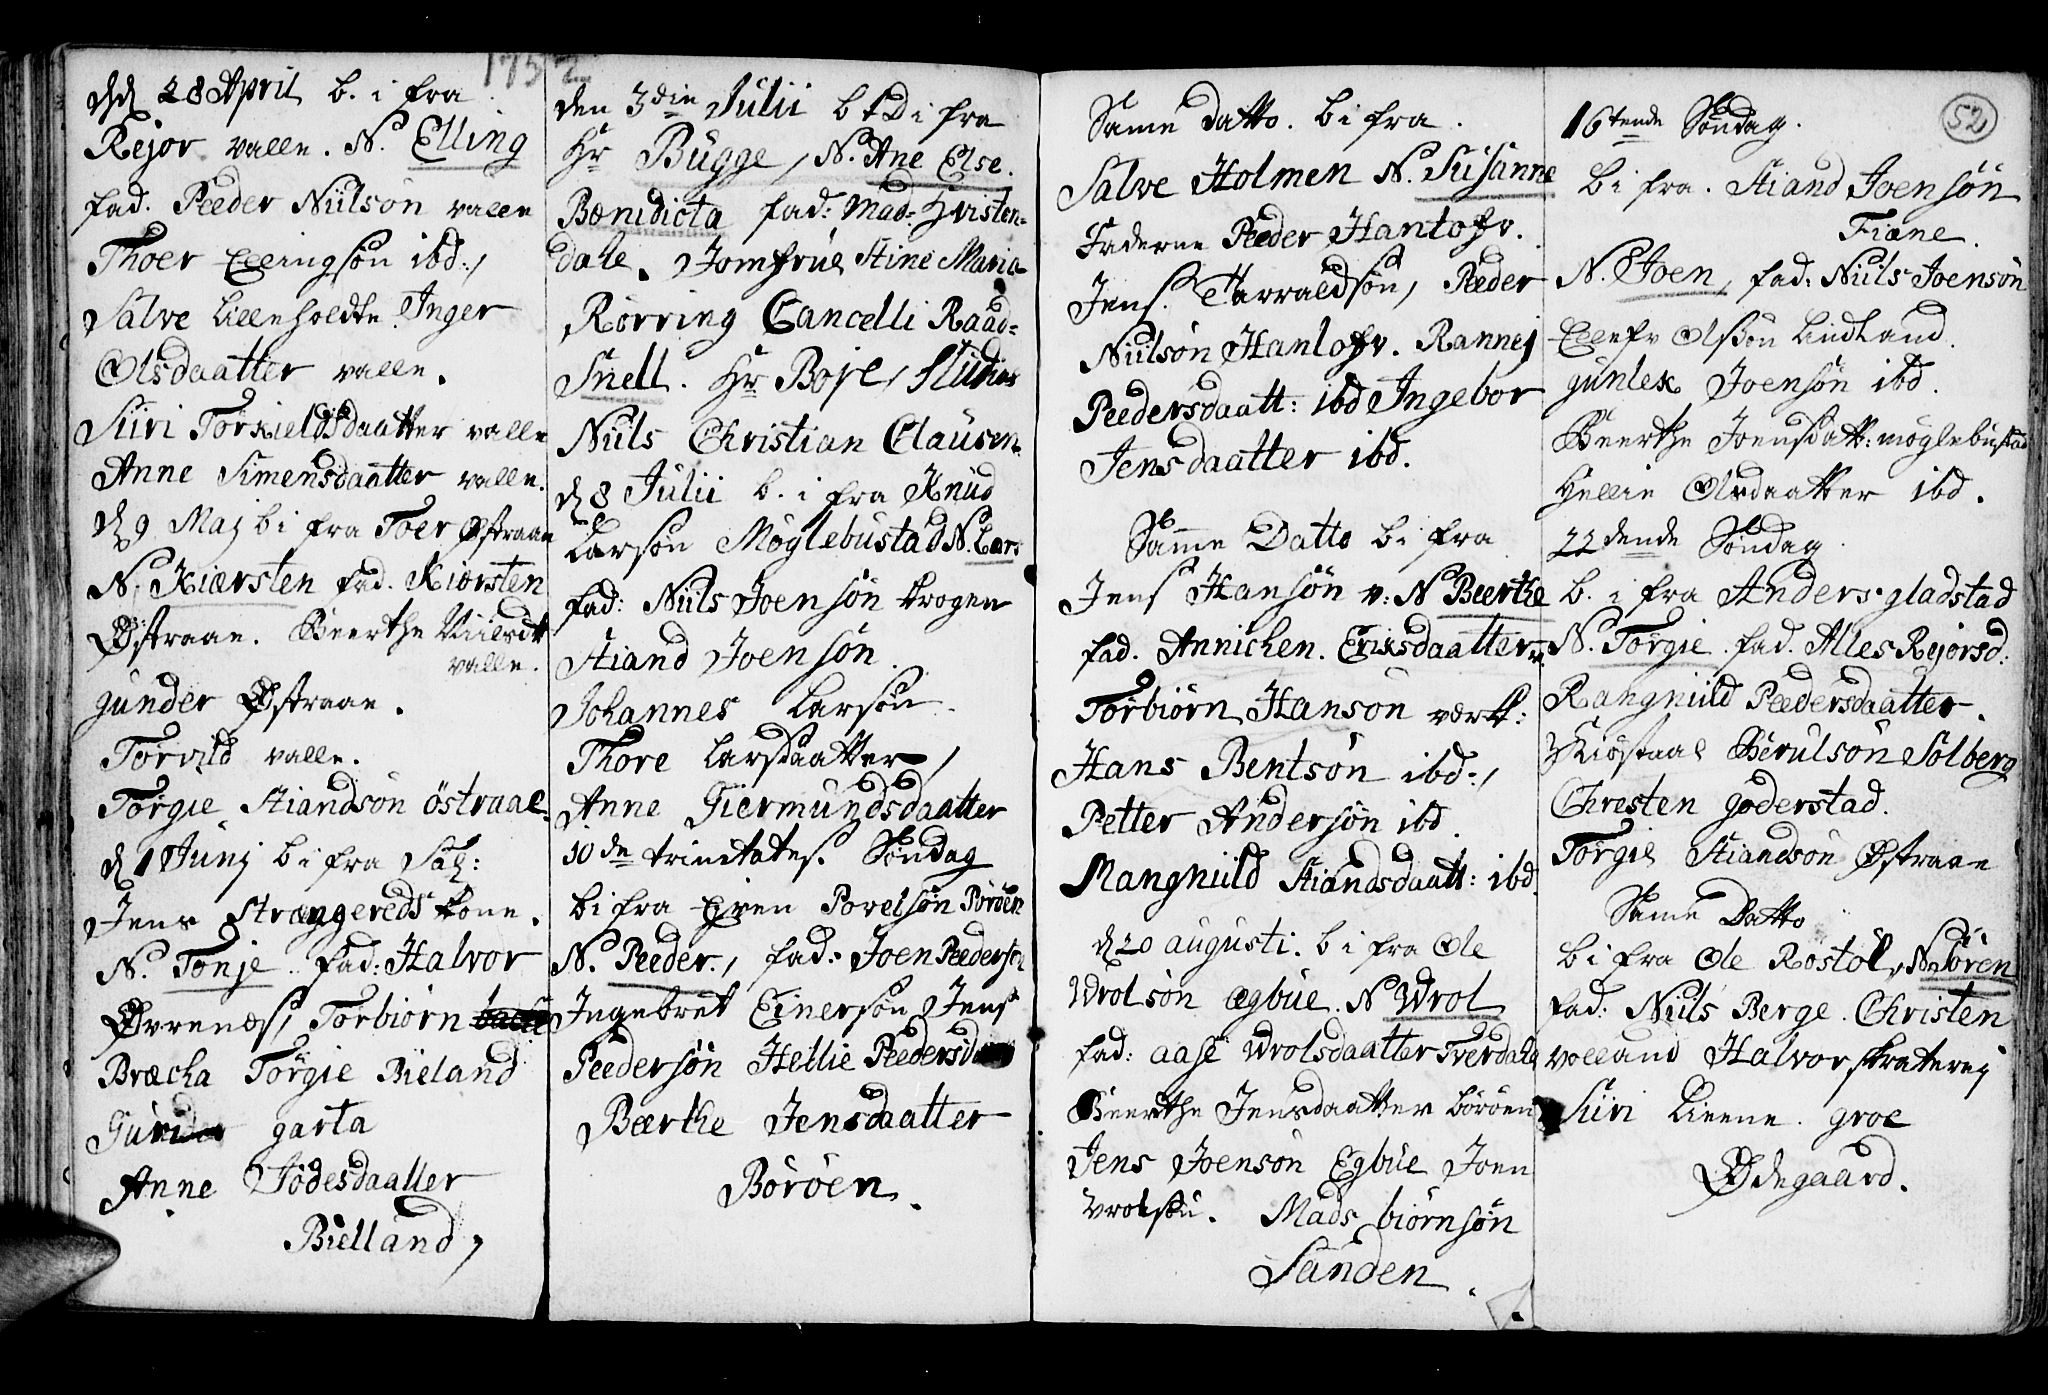 1752
d 28 April b. i fra
Rejor valle. N. Elling
fad. Peder Niilsøn valle
Thoer Ellingsøn ibd.,
Salve Lilleholdte. Inger
Olsdaatter valle.
Siiri Torkieldsdaatter valle
Anne Simensdaatter valle.
d 9 Maj b i fra Toer Østraae
N. Kiersten fad. Kiersten
Østraae. Beerthe
valle.
gunder Østraae.
Torvild valle.
Torgie Stiandsøn östraae
d 1 Junj b i fra Sal:
Jens Strængereds kone.
N. Tonje. fad: Halvor
Øvrenes, Torbiørn
Bræcka Törgie Bieland
garta
Anne Jödesdaatter
Bielland,
den 3die Julii b i fra
Hr Bugge, N. Ane Else.
Benidicta fad: Mad: Kristen-
dahl. Jomfrue Stine Maria
Rørring Cancelli Raad-
Snell. Hr Boje, Studios
Niils Christian Clausen.
d 8 Julii b. i fra Knud
Larsøn Møglebustad N. Lars
fad: Niils Joensøn krogen
Stiand Joensøn.
Johannes Larsøn.
Thore Larsdaatter,
Anne Giermundsdaatter
10de trinitates. Søndag
b i fra Even Povelsøn Børøen
N. Peder., fad. Joen Pedersøn
Ingebret Einersøn Jens
Pedersøn Hellie
Bærthe Jensdaatter
Børøen.
Same Datto. b i fra.
Salve Holmen N. Susanne
Faderne Peder Hantofr.
Jens Tarraldsøn, Peder
Niilsøn Hantofr. Rannej
Pedersdaatt: ibd Ingebor
Jensdaatter ibd.
Same Datto b i fra
Jens Hansøn v: N Beerthe
fad. Annichen. Eriksdaatter
Torbiørn Hansøn værk:
Hans Bentsøn ibd.,
Petter Andersøn ibd.
Mangniild Stiandsdaatt: ibd.
d 20 augusti. b i fra Ole
Wrolsøn Egbue. N Wrol
fad: aase Wrolsdaatter Tverdahl
Beerthe Jensdaatter børøen
Jens Joensøn Egbue Joen
Wrolsøn. Mads biørnsøn
Sanden.
52
16tende Søndag.
b i fra. Stiand Joensøn
Fiane.
N. Joen, fad. Niils Joensøn
Ellefr Olsøn Lindland.
gunlek Joensøn ibd.
Beerthe Joensdatt: møglebustad
Hellie Olsdaatter ibd.
22dende Søndag.
b. i fra Anders gladstad
N. Torgie. fad. Alles Rejorsd:
Rangniild Pedersdaatter.
Berulsøn Solberg
Chresten goderstad.
Torgie Stiandsøn Østraae
Same Datto
b i fra Ole Røstøl, N. Søren
fad: Niils Berge. Christen
volland Halvor
Siiri Liene. groe
Ødegaard.